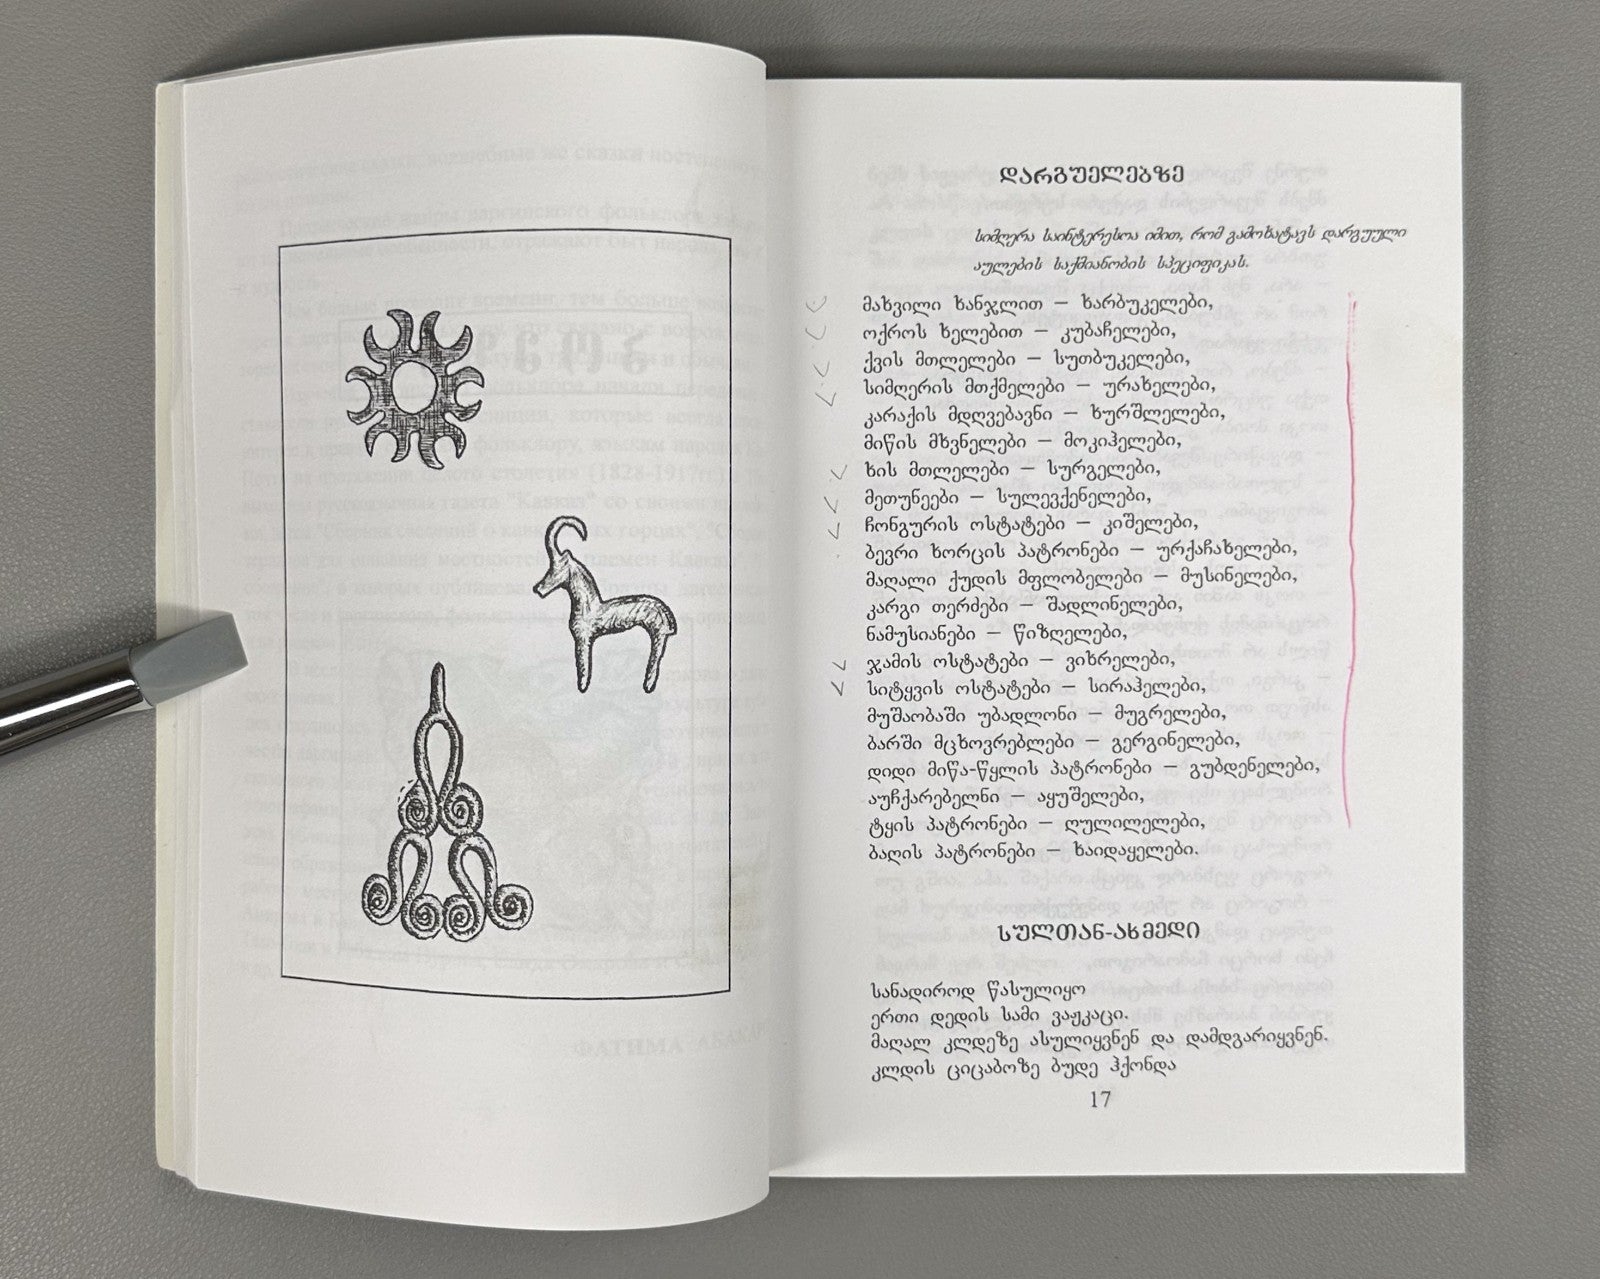 დარგუელებზე
სიმღერა საინტერესოა იმით, რომ გამოხატავს დარგუული
აულების საქმიანობის სპეციფიკას.
მახვილი ხანჯლით — ხარბუკელები,
ოქროს ხელებით — კუბაჩელები,
ქვის მთლელები — სუთბუკელები,
სიმღერის მთქმელები — ურახელები,
კარაქის მდღვებავნი — ხურშლელები,
მიწის მხვნელები — მოკიჰელები,
ხის მთლელები — სურგელები,
მეთუნეები — სულევქენელები,
ჩონგურის ოსტატები — კიშელები,
ბევრი ხორცის პატრონები — ურქაჩახელები,
მაღალი ქუდის მფლობელები — მუსინელები,
კარგი თერძები — შადლინელები,
ნამუსიანები — წიზღელები,
ჯამის ოსტატები — ვიხრელები,
სიტყვის ოსტატები — სირაჰელები,
მუშაობაში უბადლონი — მუგრელები,
ბარში მცხოვრებლები — გერგინელები,
დიდი მიწა-წყლის პატრონები — გუბდენელები,
აუჩქარებელნი — აყუშელები,
ტყის პატრონები — ღულილელები,
ბაღის პატრონები — ხაიდაყელები.
სულთან-ახმედი
სანადიროდ წასულიყო
ერთი დედის სამი ვაჟკაცი.
მაღალ კლდეზე ასულიყვნენ და დამდგარიყვნენ.
კლდის ციცაბოზე ბუდე ჰქონდა
17